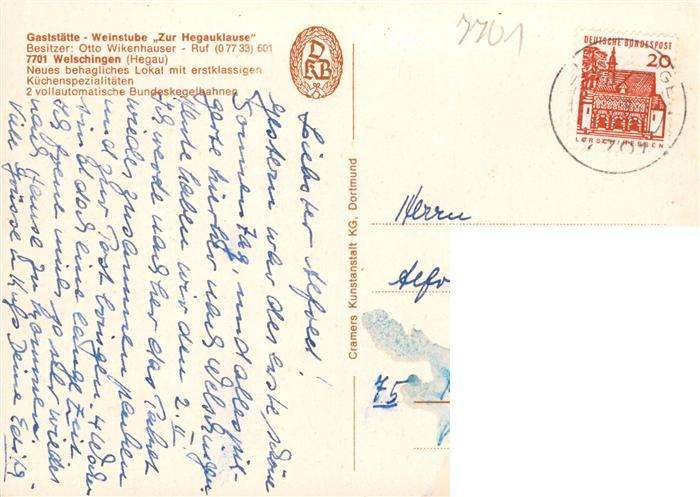 Gaststätte - Weinstube „Zur Hegauklause"
Besitzer: Otto Wikenhauser - Ruf (0 77 33) 601
7701 Welschingen (Hegau)
Neues behagliches Lokal mit erstklassigen
Küchenspezialitäten
2 vollautomatische Bundeskegelbahnen
DKB
7701
DEUTSCHE BUNDESPOST
20
LORSCH/HESSEN
Cramers Kunstanstalt KG, Dortmund
Liebster Alfred!
Gestern war der erste schöne
Sonnentag, und alles
hierher nach Welschingen
Heute haben wir den 2. II.
Ich werde nachher das Paket
wieder zusammenpacken
und zur Post bringen. 4 Wochen
sind doch eine lange Zeit
Ich freue mich so sehr wieder
nach Hause zu kommen.
Viele Grüsse u. Kuss Deine Edith
Herrn
Alfr
75